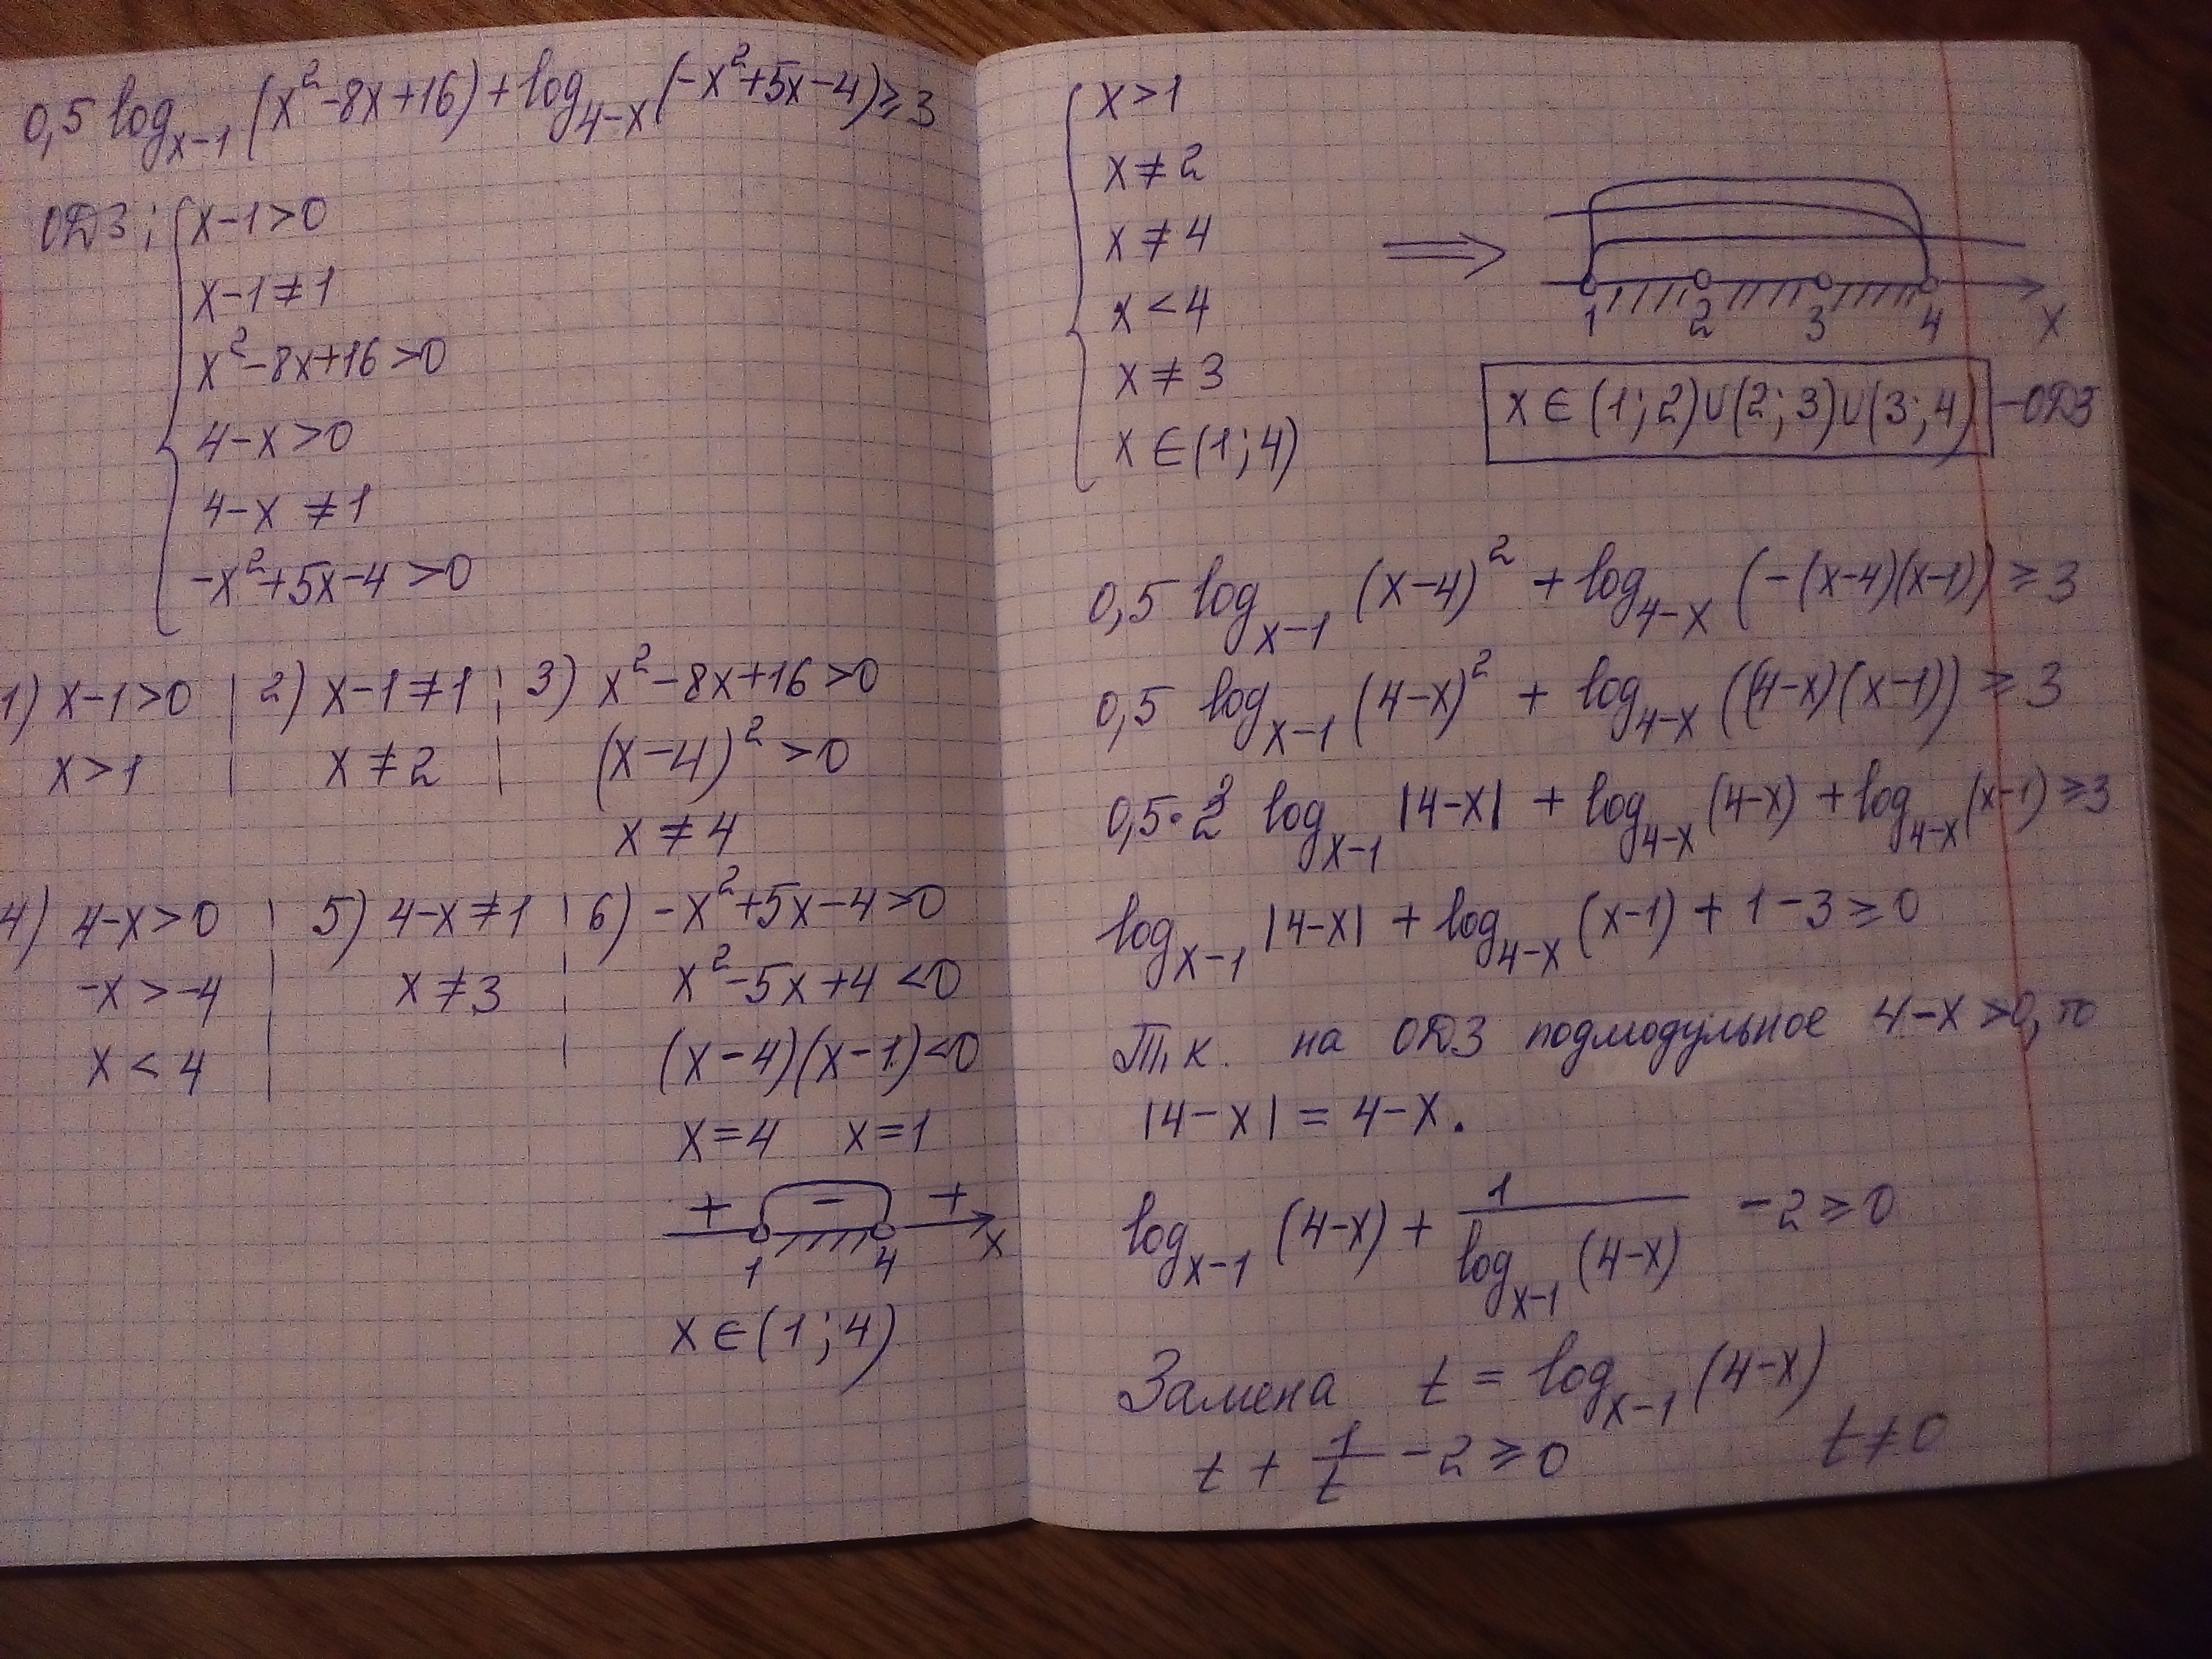 0,5 log_{x-1} (x²-8x+16) + log_{4-x} (-x²+5x-4) ≥ 3
ОДЗ: { x-1>0
x-1≠1
x²-8x+16>0
4-x>0
4-x ≠1
-x²+5x-4>0
1) x-1>0 | 2) x-1≠1 | 3) x²-8x+16>0
x>1 | x≠2 | (x-4)²>0
x≠4
4) 4-x>0 | 5) 4-x≠1 | 6) -x²+5x-4>0
-x>-4 | x≠3 | x²-5x+4<0
x<4 | (x-4)(x-1)<0
x=4 x=1
+ - +
1 4 x
x∈(1;4)
{ x>1
x≠2
x≠4
x<4
x≠3
x∈(1;4)
⟹
1 2 3 4 x
x∈(1;2)∪(2;3)∪(3;4) -ОДЗ
0,5 log_{x-1} (x-4)² + log_{4-x} (-(x-4)(x-1)) ≥ 3
0,5 log_{x-1} (4-x)² + log_{4-x} ((4-x)(x-1)) ≥ 3
0,5·2 log_{x-1} |4-x| + log_{4-x} (4-x) + log_{4-x} (x-1) ≥ 3
log_{x-1} |4-x| + log_{4-x} (x-1) + 1-3 ≥ 0
Т.к. на ОДЗ подмодульное 4-x>0, то
|4-x| = 4-x.
log_{x-1} (4-x) + 1/(log_{x-1} (4-x)) -2 ≥ 0
Замена t = log_{x-1} (4-x)
t + 1/t -2 ≥ 0 t≠0